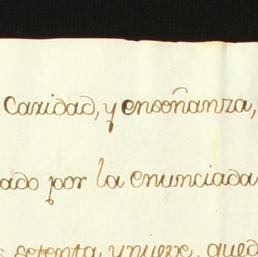 Caridad, y enseñanza,
ado por la enunciada
setenta, y nueve, qued